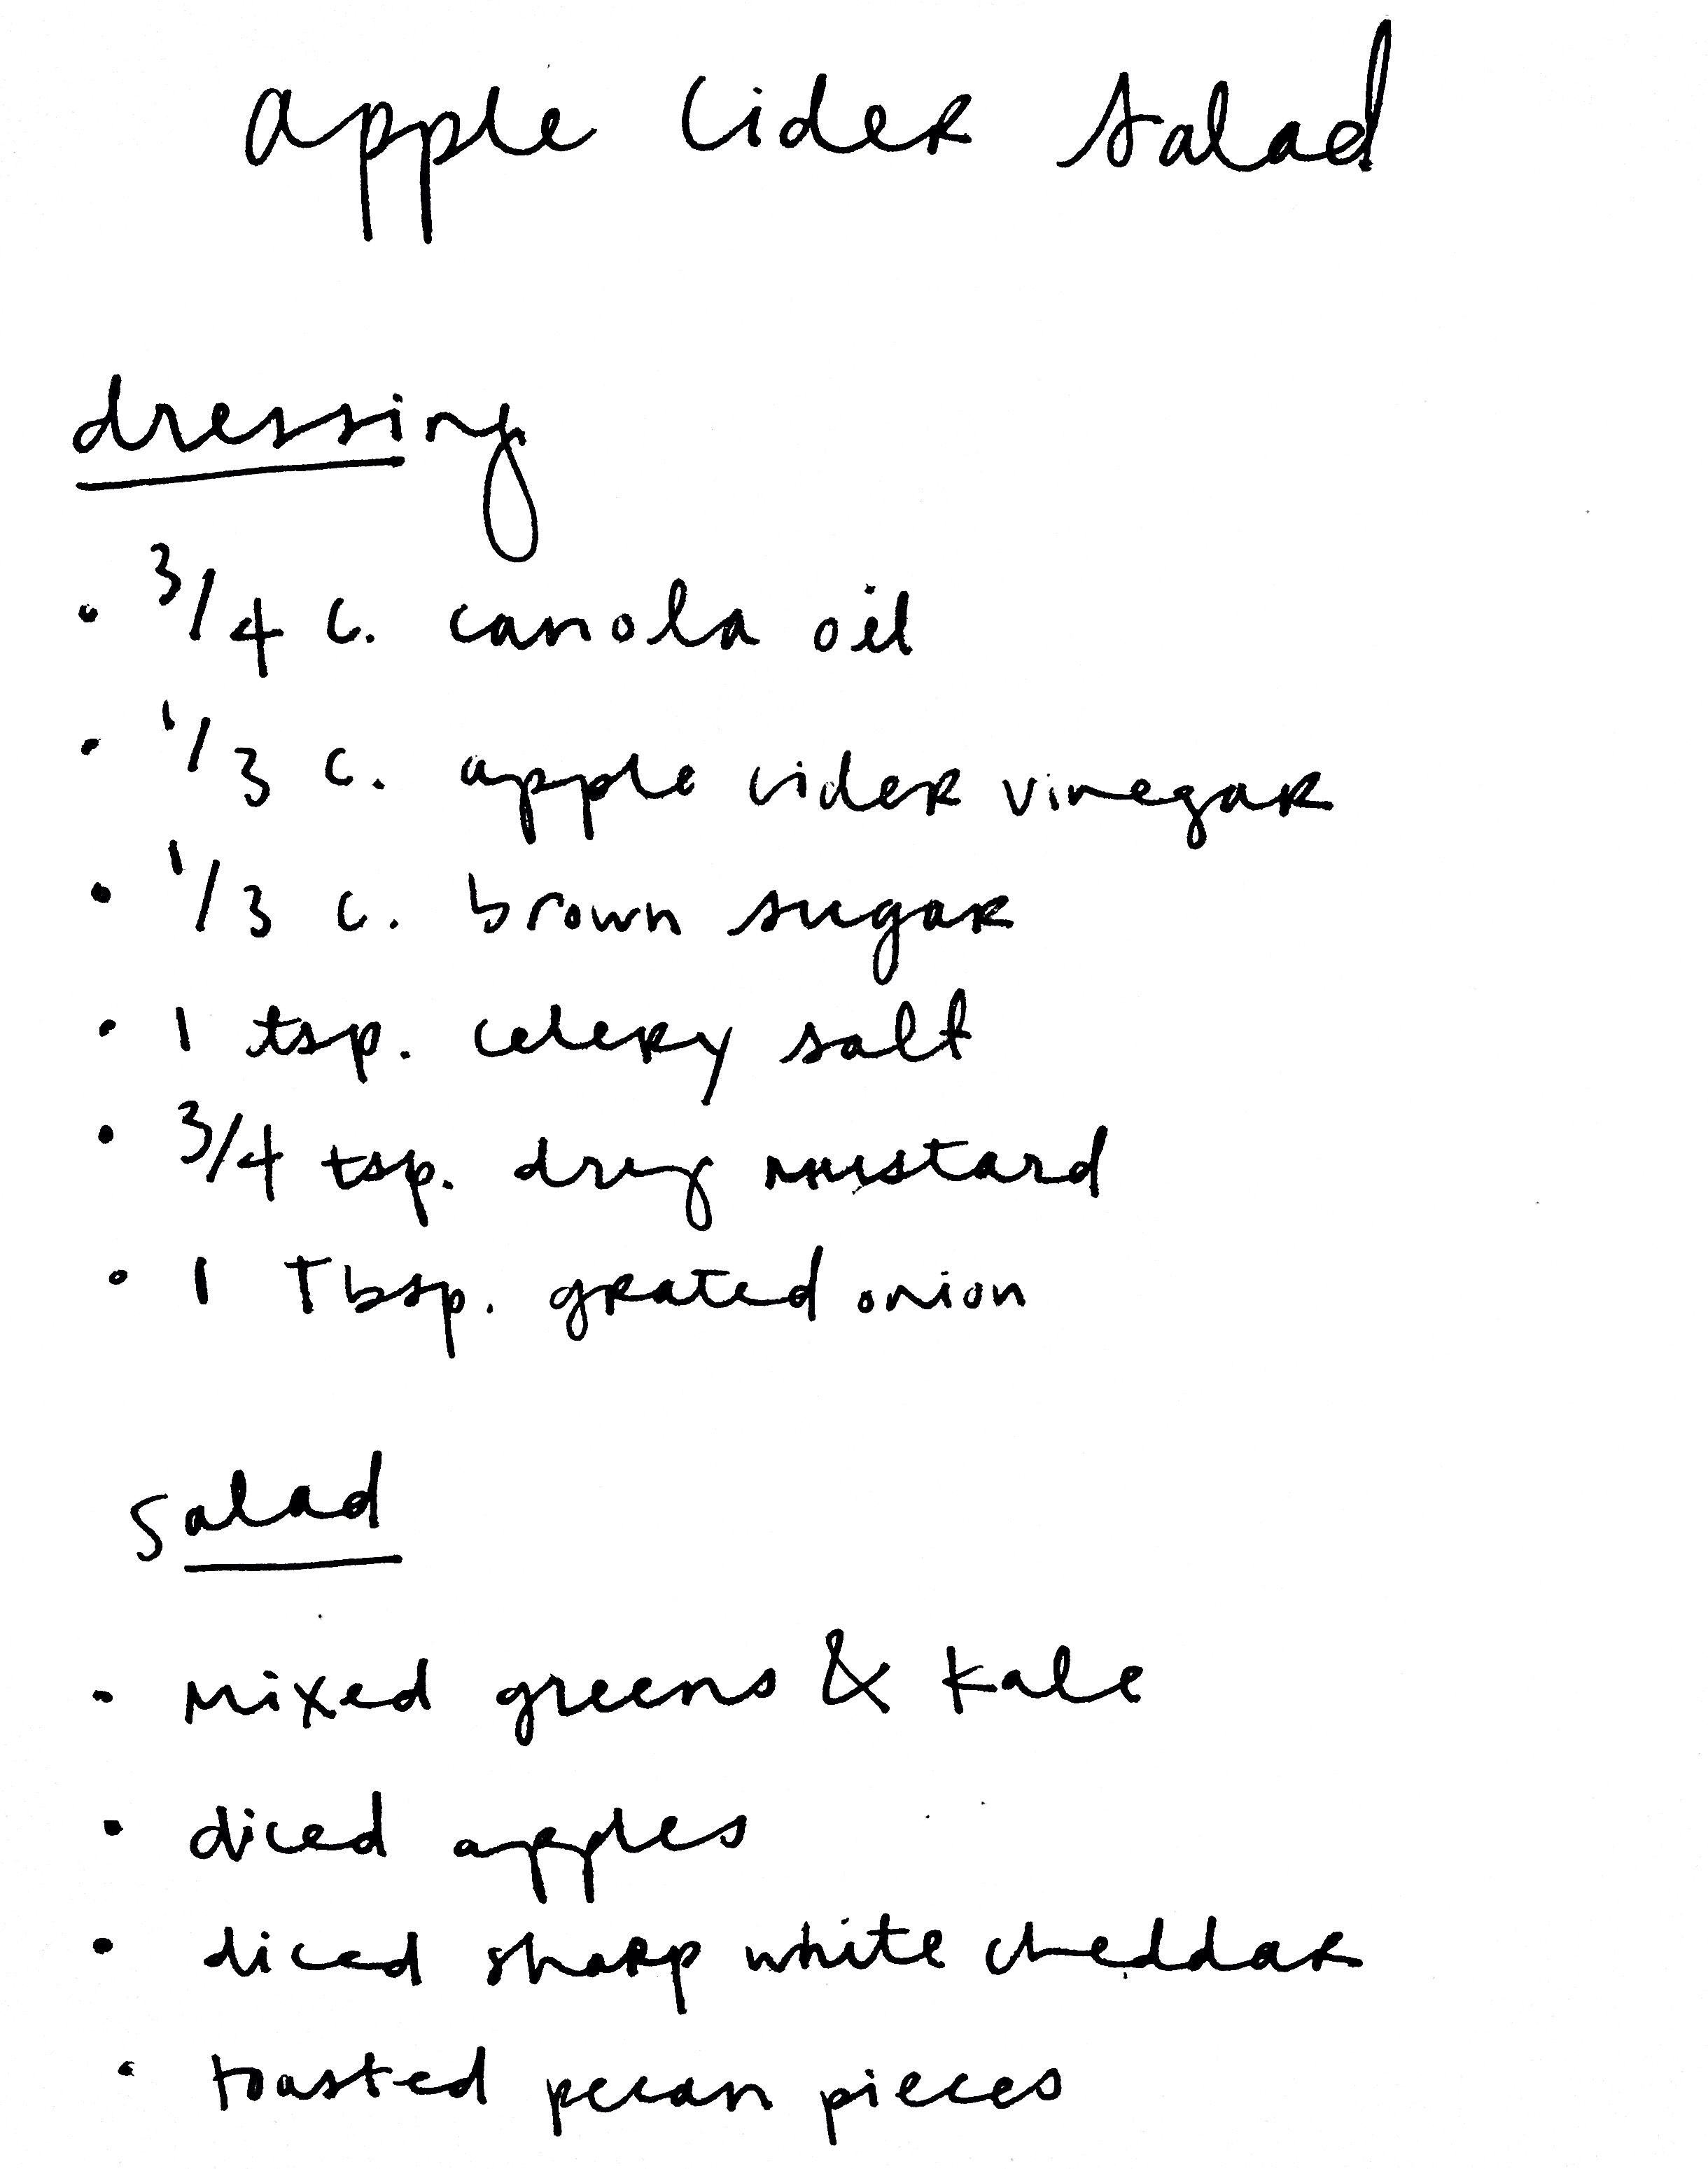 apple cider salad
dressing
• 3/4 c. canola oil
• 1/3 c. apple cider vinegar
• 1/3 c. brown sugar
• 1 tsp. celery salt
• 3/4 tsp. dry mustard
• 1 Tbsp. grated onion
salad
• mixed greens & kale
• diced apples
• diced sharp white cheddar
• toasted pecan pieces